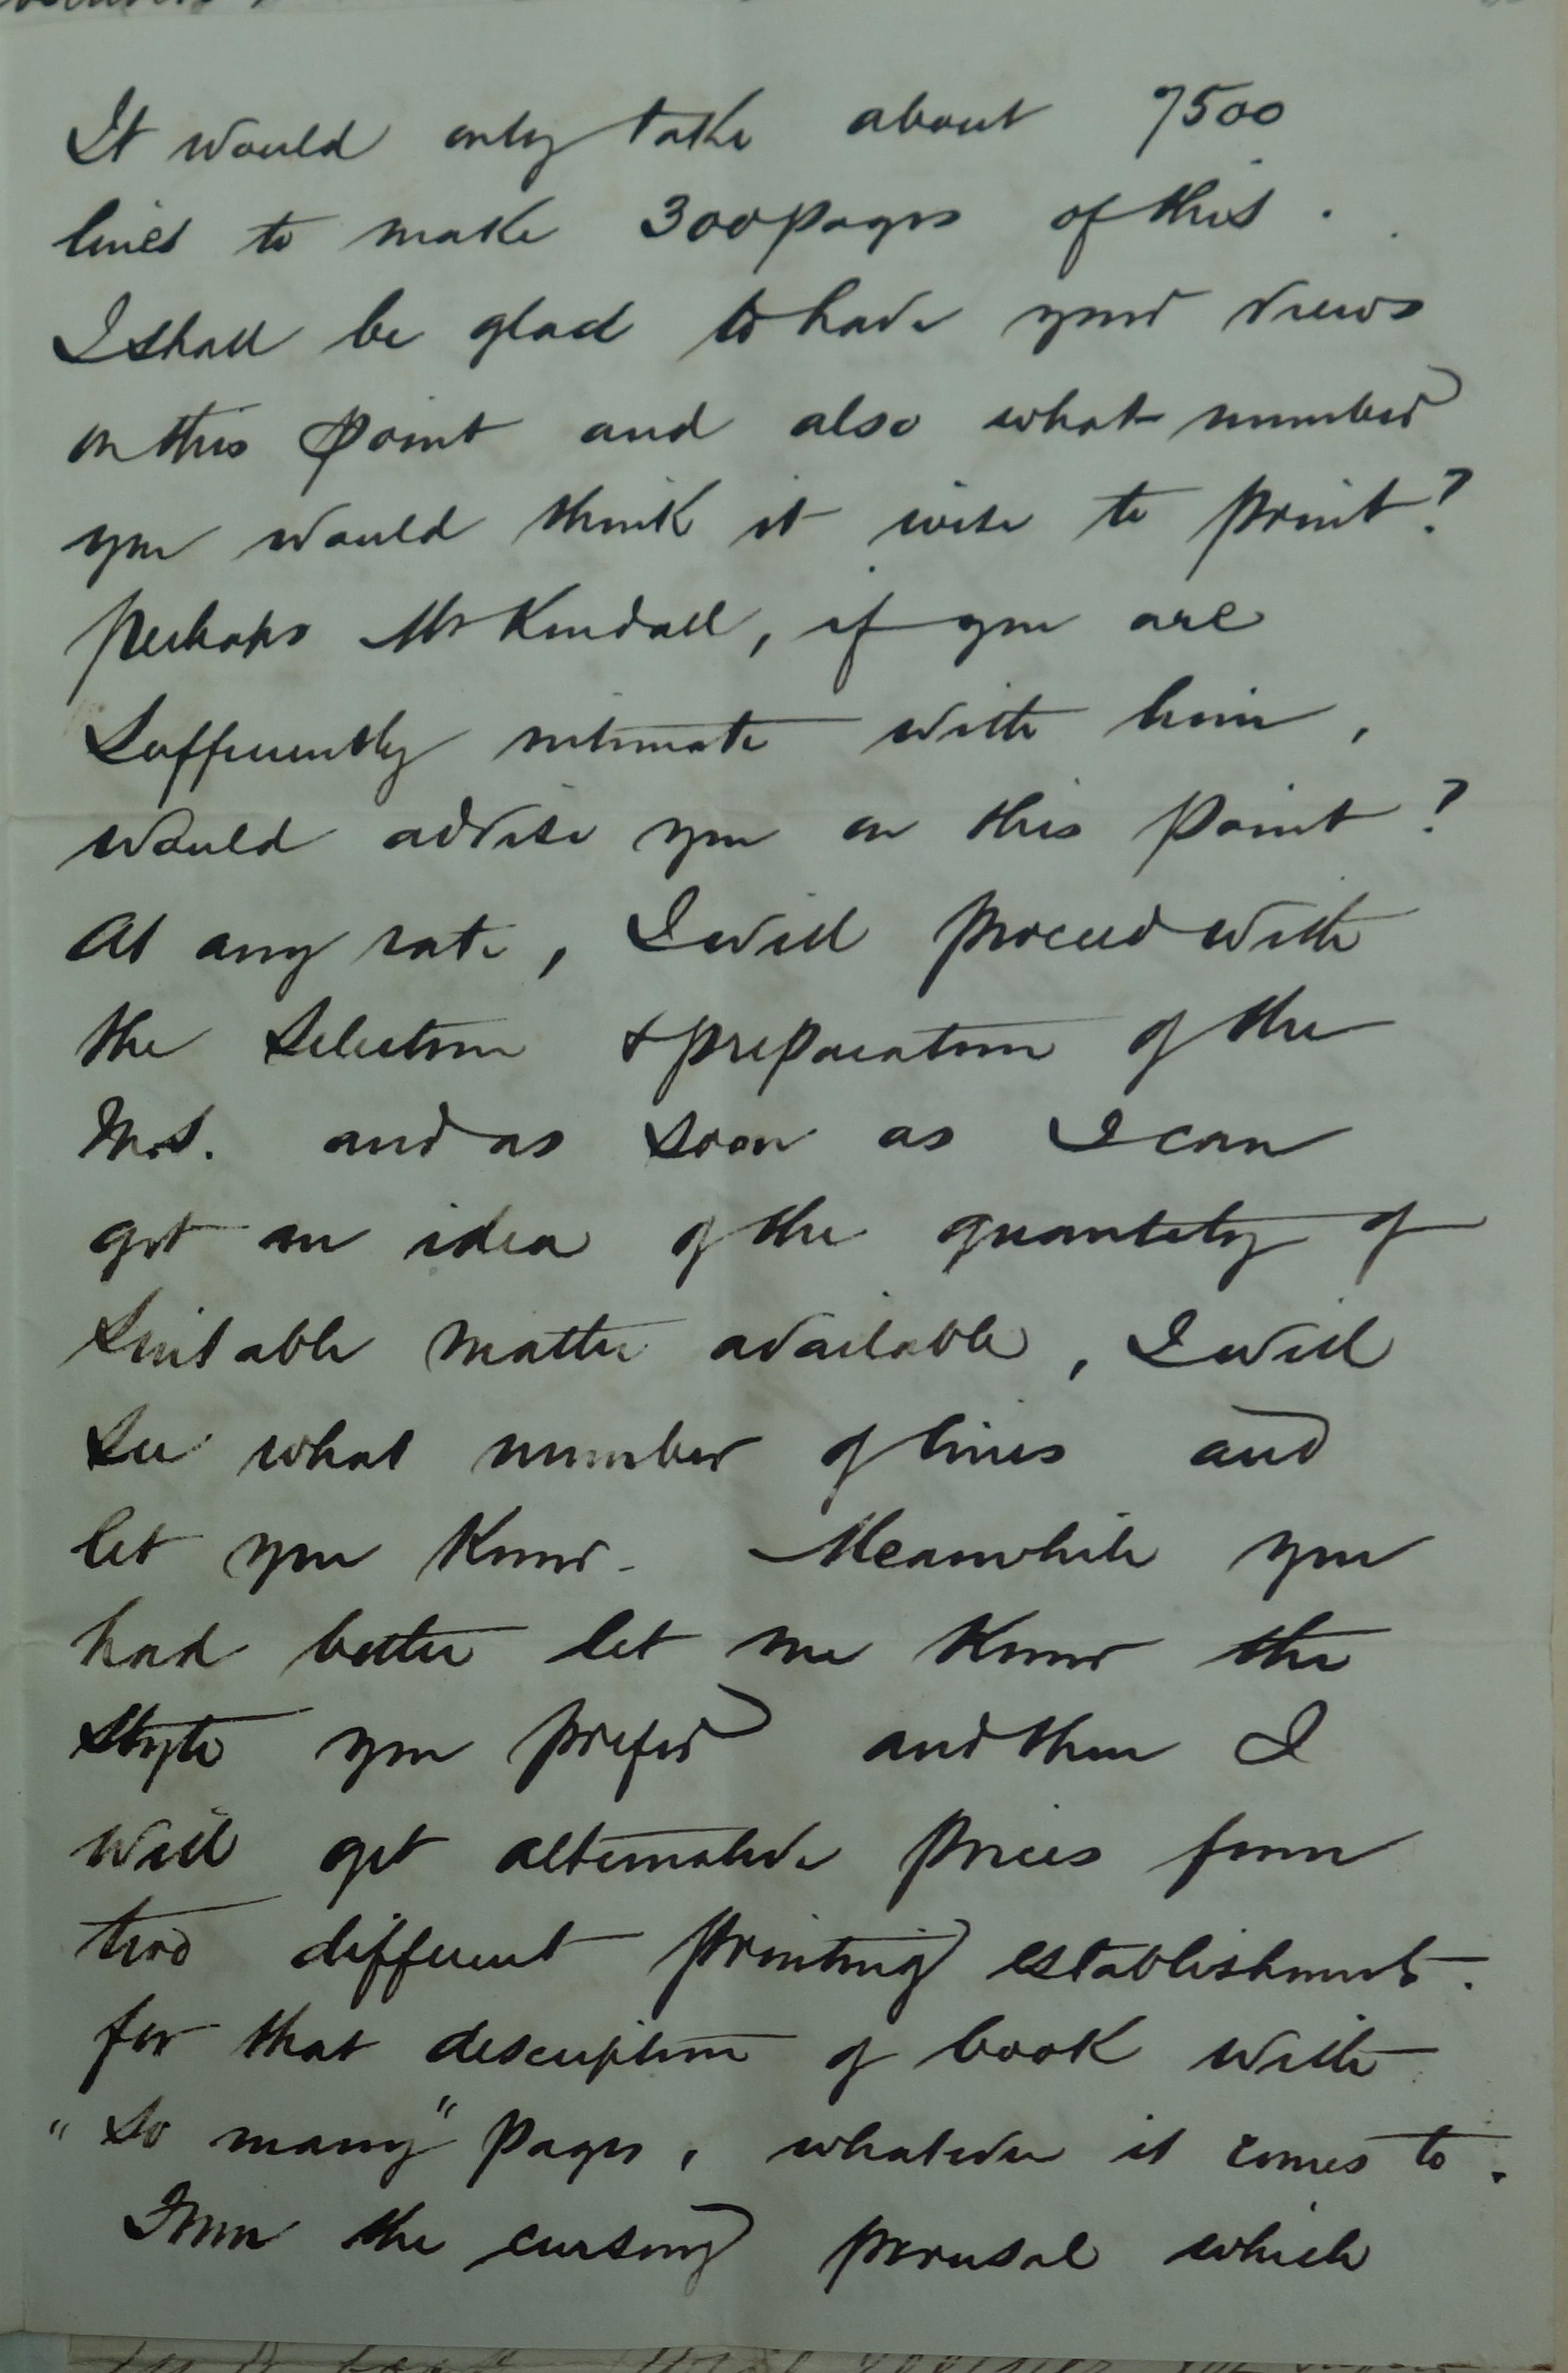 It would only take about 7500
lines to make 300 pages of this.
I shall be glad to have your views
on this point and also what number
you would think it wise to print?
perhaps Mr Kendall, if you are
Sufficiently intimate with him,
would advise you on this point?
At any rate, I will proceed with
the selection & preparation of the
M.S. and as soon as I can
get an idea of the quantity of
suitable matter available, I will
see what number of lines and
let you know. Meanwhile you
had better let me know the
style you prefer and then I
will get alternative prices from
two different printing establishments.
for that description of book with
"so many" pages, whatever it comes to.
From the cursory perusal which